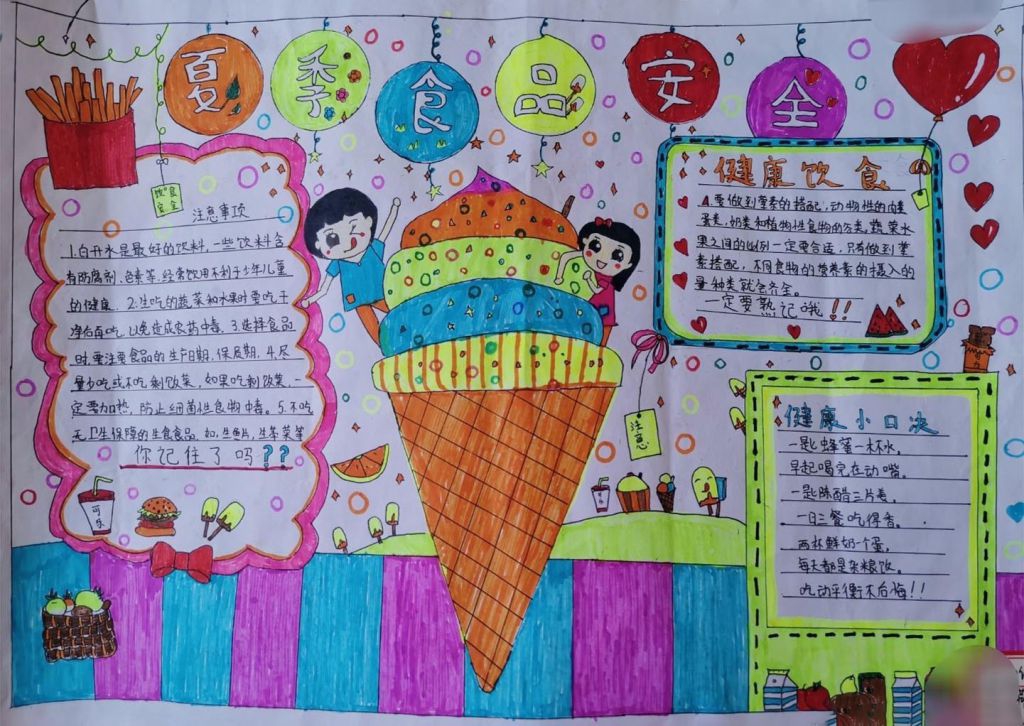 夏季食品安全
饮食
安全
注意事项
1.白开水是最好的饮料,一些饮料含
有防腐剂、色素等,经常饮用不利于少年儿童
的健康。2.生吃的蔬菜和水果时要吃干
净后再吃,以免造成农药中毒。3.选择食品
时,要注要食品的生产日期,保质期。4.尽
量少吃或不吃剩饭菜,如果吃剩饭菜,一
定要加热,防止细菌性食物中毒。5.不吃
无卫生保障的生食食品,如,生鱼片,生荠菜等
你记住了吗??
可乐
注意
健康饮食
要做到营素的搭配,动物性的肉类
蛋类,奶类和植物性食物的五类,蔬菜水
果之间的比列一定要合适,只有做到营
素搭配,不同食物的营养素的摄入的
量种类就会齐全。
一定要熟记哦!!
健康小口决
一匙蜂蜜一杯水,
早起喝完在动嘴。
一匙陈醋三片姜,
一日三餐吃得香。
两杯鲜奶一个蛋,
每天都是杂粮饭。
吃动平衡不后悔!!